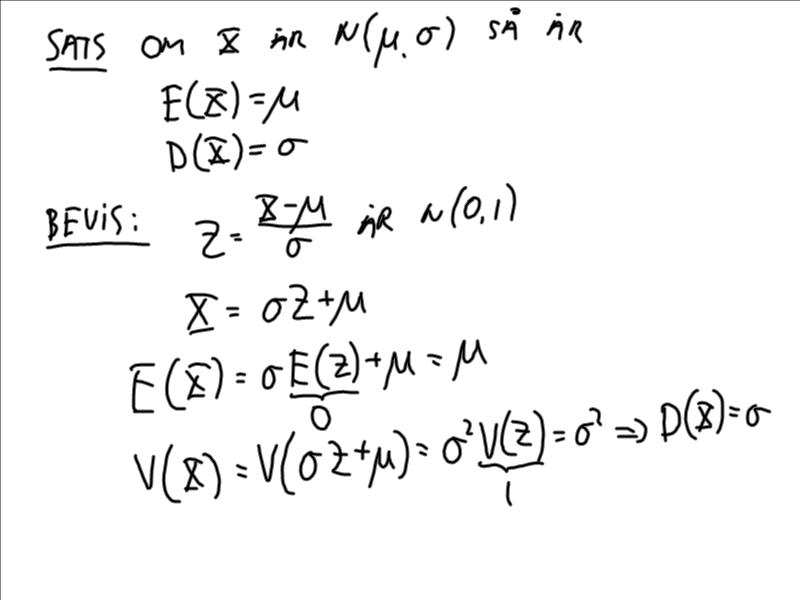 SATS OM X ÄR N(μ, σ) SÅ ÄR
E(X) = μ
D(X) = σ
BEVIS: Z = (X-μ)/σ ÄR N(0,1)
X = σZ+μ
E(X) = σE(Z)+μ = μ
0
V(X) = V(σZ+μ) = σ²V(Z) = σ² ⇒ D(X) = σ
1